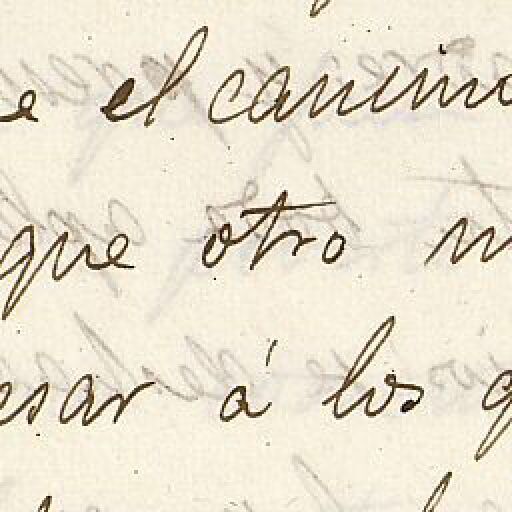 e el camino
que otro
esar á los q